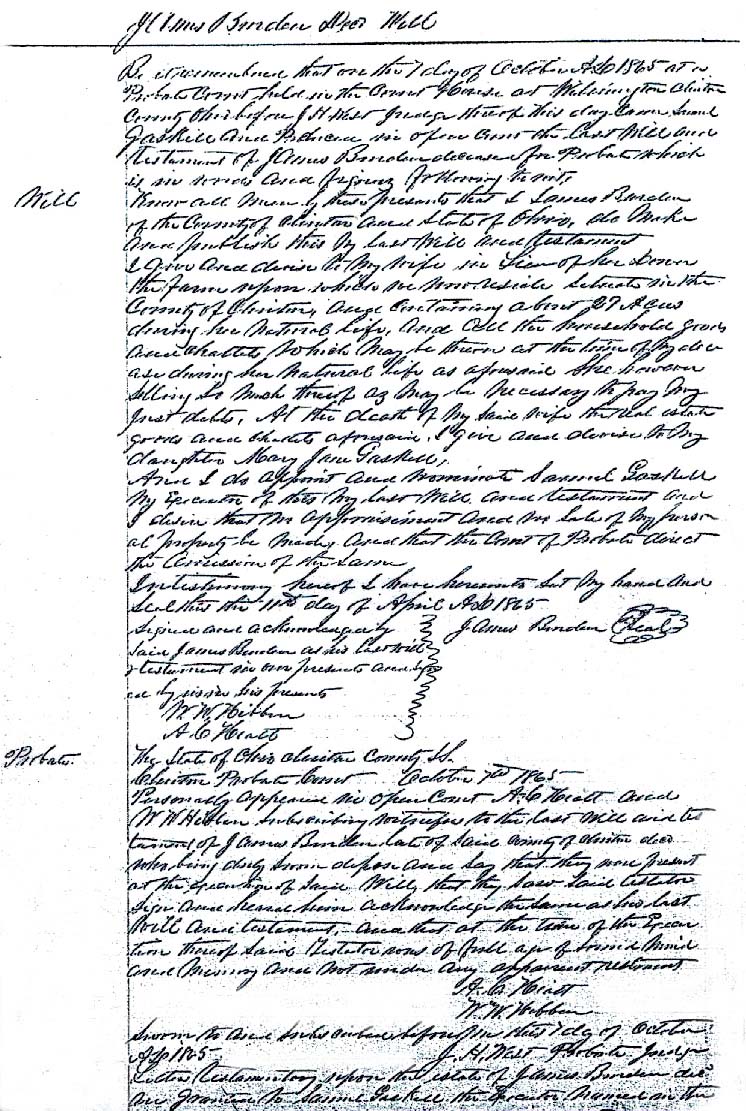 James Burden Decd Will
Be it remembered that on the 7 day of October AD 1865 at a
Probate Court held in the Court House at Wilmington Clinton
County Ohio before J H West Judge thereof this day Came Samuel
Gaskill and Produced in open Court the Last Will and
testament of James Burden deceased for Probate which
is in words and figures following to wit,
Will
Know all Men by these presents that I James Burden
of the County of Clinton and State of Ohio, do Make
and publish this My last Will and Testament
I Give and devise to My wife in Lieu of her Dower
the farm upon which we now reside Situate in the
County of Clinton, and Containing about 27 Acres
during her Natural life, and all the household goods
and chattels which May be thereon at the time of My dece
ase during her Natural life as aforesaid She however
Selling So Much thereof as May be necessary to pay My
Just debts, At the death of My Said wife the real estate
goods and chattels aforesaid, I give and devise to My
daughter Mary Jane Gaskill,
And I do appoint and Nominate Samuel Gaskill
My Executor of this My last Will and testament and
I desire that no appraisement and no Sale of My person
al property be made, and that the Court of Probate direct
the omission of the Same
In testimony hereof I have hereunto Set My hand and
Seal this the 11th day of April AD 1865
Signed and acknowledged by
James Burden Seal
Said James Burden as his last will
& testament in our presents and sign
ed by us in his presents
W. W. Hibben
A. C. Hiatt
Probate.
The State of Ohio Clinton County SS.
Clinton Probate Court October 7th 1865
Personally appeared in open Court A. C. Hiatt and
W W Hibben Subscribing witnesses to the last Will and tes
tament of James Burden late of Said County of Clinton decd
who being duly Sworn depose and Say that they were present
at the execution of Said Will, that they Saw Said testator
Sign and heard him acknowledge the Same as his last
Will and testament, and that at the time of the Execu
tion thereof Said Testator was of full age of Sound Mind
and Memory and Not under any apparent restraint
A. C. Hiatt
W. W. Hibben
Sworn to and Subscribed before me this 7 day of October
AD 1865 J. H. West Probate Judge
Letters testamentary upon the estate of James Burden decd
are Granted to Samuel Gaskill the executor named in the